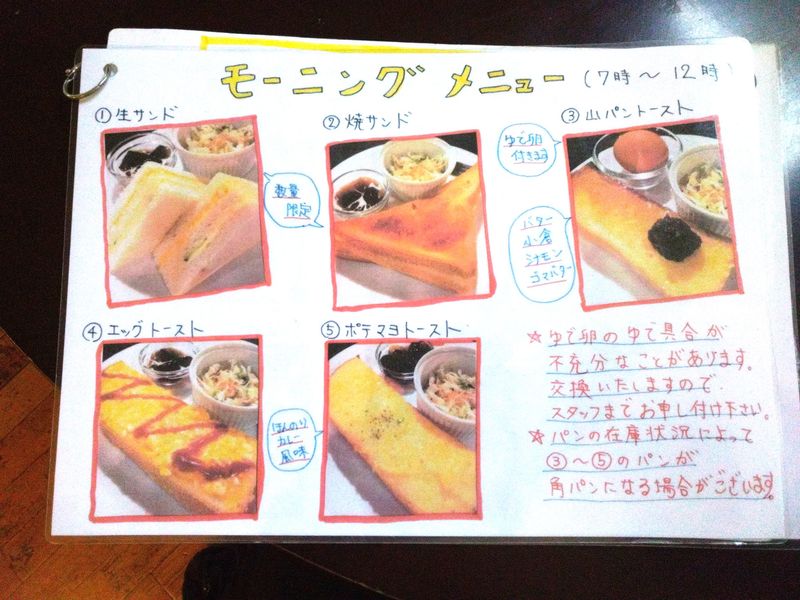 モーニング メニュー (7時～12時)
①生サンド
②焼サンド
③山パントースト
数量
限定
ゆで卵
付きます
バター
小倉
シナモン
ゴマバター
④エッグトースト
⑤ポテマヨトースト
ほんのり
カレー
風味
☆ゆで卵のゆで具合が
不充分なことがあります。
交換いたしますので
スタッフまでお申し付け下さい。
☆パンの在庫状況によって
③～⑤のパンが
角パンになる場合がございます。